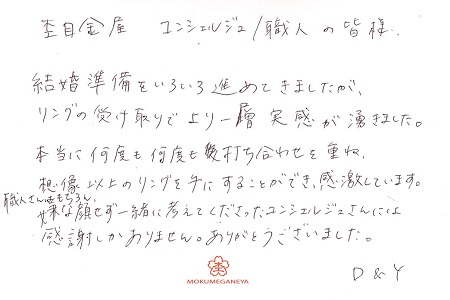 杢目金屋 コンシェルジュ/職人の皆様、
結婚準備をいろいろ進めてきましたが、
リングの受け取りでより一層実感が湧きました。
本当に何度も何度も打ち合わせを重ね、
想像以上のリングを手にすることができ、感激しています。
職人さんはもちろん、
嫌な顔せず一緒に考えてくださったコンシェルジュさんには
感謝しかありません。ありがとうございました。
MOKUMEGANEYA
D & Y